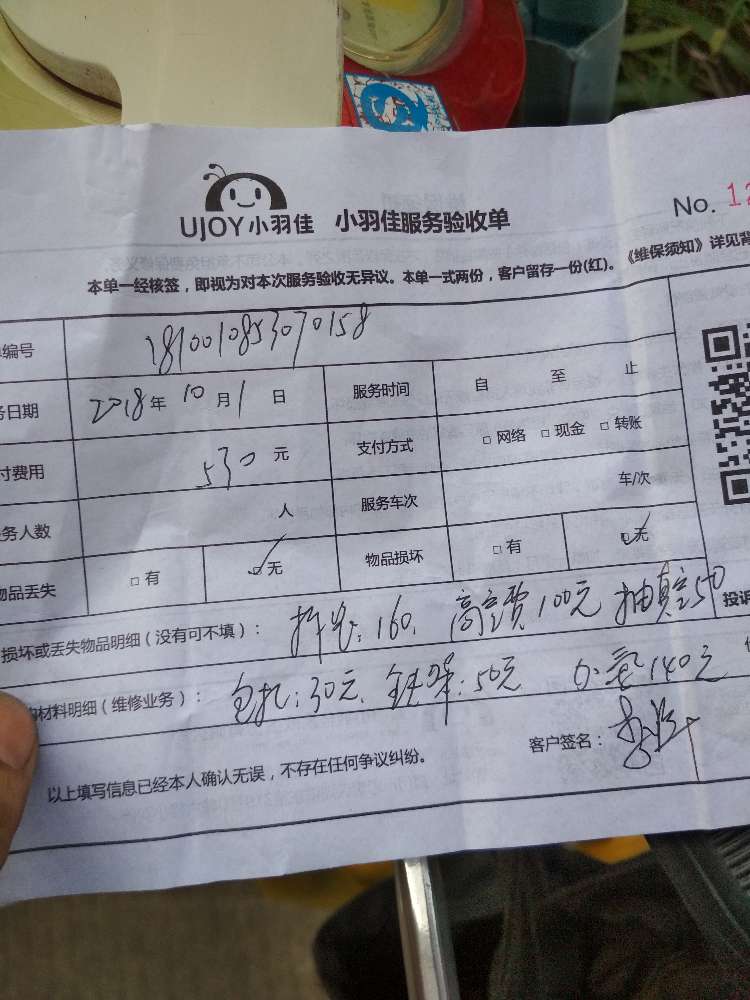 UJOY小羽佳 小羽佳服务验收单 No. 12
本单一经核签，即视为对本次服务验收无异议。本单一式两份，客户留存一份(红)。《维保须知》详见背
编号 1810010853070158
务日期 2018年 10月1日 服务时间 自 至 止
付费用 530元 支付方式 □网络 □现金 □转账
务人数 人 服务车次 车/次
物品丢失 □有 □无 物品损坏 □有 □无
损坏或丢失物品明细（没有可不填）： 拆装：160. 高空费100元 抽真空50 投诉
材料明细（维修业务）： 包扎：30元、铁架：50元 加氟140元
以上填写信息已经本人确认无误，不存在任何争议纠纷。 客户签名：